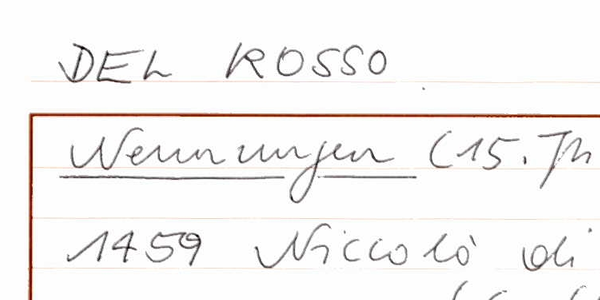 DEL ROSSO
Nennungen (15. Jh
1459 Niccolò di